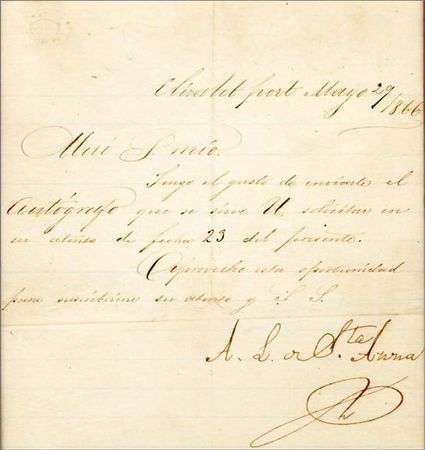 Elizabet port Mayo 29/866
Mui S. mio.
Tengo el gusto de enviarle el
Autógrafo que se sirve U. solicitar en
su atenta de fecha 23 del presente.
Aprovecho esta oportunidad
para suscribirme su atento y S. S.
A. L. de Sta. Anna